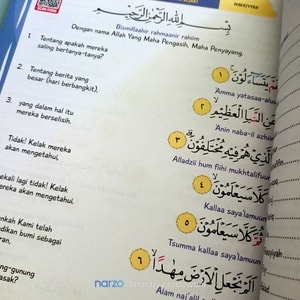 MAKKIYYAH
بِسْمِ اللّٰهِ الرَّحْمٰنِ الرَّحِيْمِ
Bismillaahir rahmaanir rahiim
Dengan nama Allah Yang Maha Pengasih, Maha Penyayang.
1. Tentang apakah mereka
saling bertanya-tanya?
عَمَّ يَتَسَاۤءَلُوْنَ ١
'Amma yatasaa-a
2. Tentang berita yang
besar (hari berbangkit).
عَنِ النَّبَاِ الْعَظِيْمِ ٢
'Anin naba-il azhii
3. yang dalam hal itu
mereka berselisih.
الَّذِيْ هُمْ فِيْهِ مُخْتَلِفُوْنَ ٣
Alladzii hum fiihi mukhtalifuu
Tidak! Kelak mereka
akan mengetahui,
كَلَّا سَيَعْلَمُوْنَ ٤
Kallaa saya'lamuun
sekali lagi tidak! Kelak
mereka akan mengetahui.
ثُمَّ كَلَّا سَيَعْلَمُوْنَ ٥
Tsumma kallaa saya'lamuun
Kami telah
bumi sebagai
اَلَمْ نَجْعَلِ الْاَرْضَ مِهٰدًا ٦
Alam naj'alil
narzo